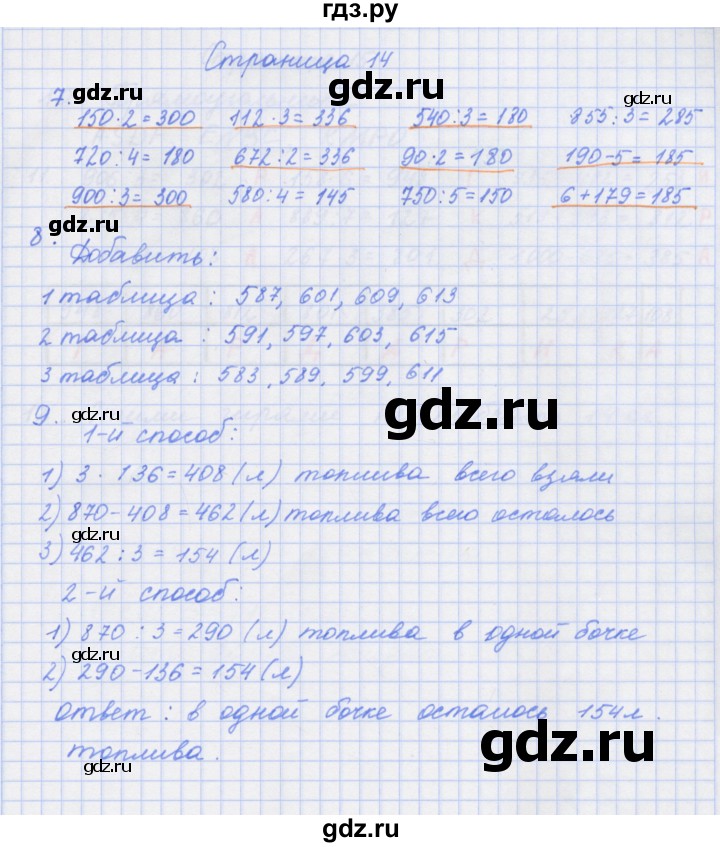 гдз.ру
Страница 14
7.
150·2=300 112·3=336 540:3=180 855:3=285
720:4=180 672:2=336 90·2=180 190-5=185
900:3=300 580:4=145 750:5=150 6+179=185
8.
Добавить:
1 таблица: 587, 601, 609, 613
2 таблица: 591, 597, 603, 615
3 таблица: 583, 589, 599, 611
9.
1-й способ:
1) 3·136=408(л) топлива всего взяли
2) 870-408=462(л) топлива всего осталось
3) 462:3=154(л)
2-й способ:
1) 870:3=290(л) топлива в одной бочке
2) 290-136=154(л)
ответ: в одной бочке осталось 154л.
топлива.
gdz.ru
gdz.ru
gdz.ru
gdz.ru
gdz.ru
gdz.ru
gdz.ru
gdz.ru
gdz.ru
gdz.ru
gdz.ru
gdz.ru